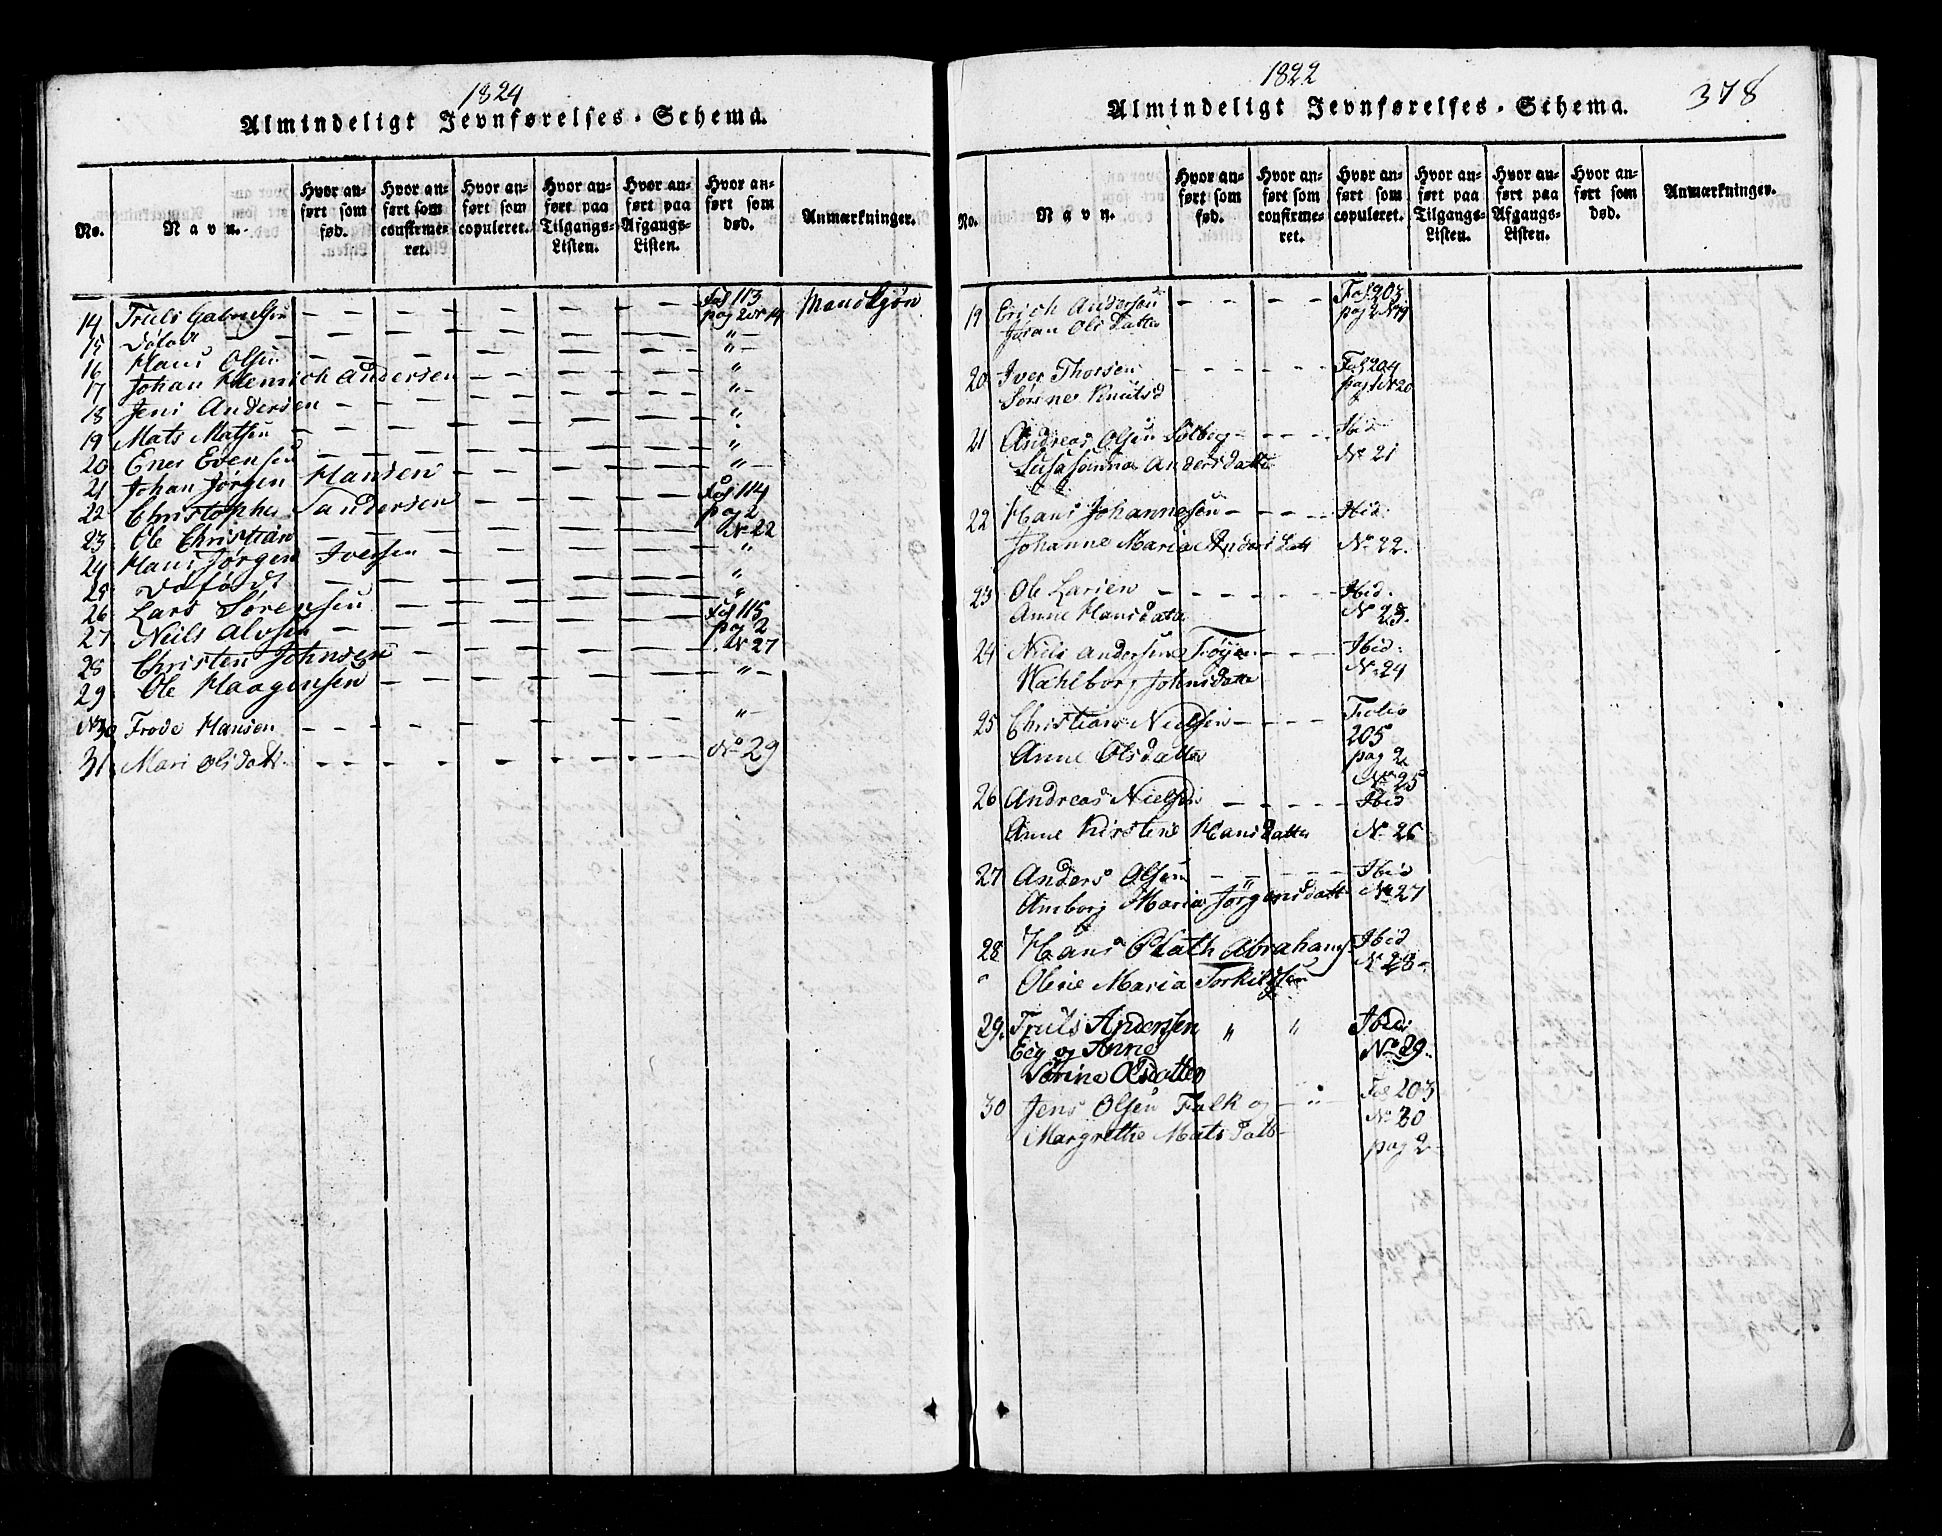 1824
Almindeligt Jevnførelses-Schema.
No.
Navn.
Hvor anført som fød.
Hvor anført som confirmeret.
Hvor anført som copuleret.
Hvor anført paa Tilgangs-Listen.
Hvor anført paa Afgangs-Listen.
Hvor anført som død.
Anmærkninger.
14 Truls Gabrielsen — — — — — Fol 113 pag 2 Nr 14 Mandkjøn
15 — — — — — "—
16 Hans Olsen — — — — — "
17 Johan Henrich Andersen — — — — "—
18 Jens Andersen — — — — — "
19 Mats Matsen — — — — — "
20 Ener Evensen — — — — — "—
21 Johan Jørgen Hansen — — — —
22 Christopher Tandersen — — — — Fol 114 pag 2 Nr 22
23 Ole Christian — — — — — "
24 Hans Jørgen Iversen — — — — "
25 — — — — — "
26 Lars Sørensen — — — —
27 Niels — — — — — Fol 115 pag 2 Nr 27
28 Christen Johnsen — — — — "—
29 Ole Haagensen — — — — "—
No 30 Frode Hansen — — — — —
31 Mari Olsdatt. — — — — — No 29
1822
Almindeligt Jevnførelses-Schema.
378
No.
Navn.
Hvor anført som fød.
Hvor anført som confirmeret.
Hvor anført som copuleret.
Hvor anført paa Tilgangs-Listen.
Hvor anført paa Afgangs-Listen.
Hvor anført som død.
Anmærkninger.
19 Erich Andersen — — Fol 203
Joran Olsdatter pag 2 Nr 19
20 Iver Thorsen — — Fol 204
Sørine Knutsd pag 1 Nr 20
21 Andreas Olsen Solberg — — Ibid
Andersdatter No 21
22 Hans Johannesen — — Ibid:
Johanne Maria Andersdatt No 22.
23 Ole Larsen — — Ibid.
Anne Hansdatter No 23.
24 Niels Andersen Trøyen — — Ibid:
Wahlborg Johnsdatter No 24
25 Christian Nielsen — — Folio
Anne Olsdatter 205
pag 2
No 25
26 Andreas Nielsen — — Ibid
Anne Kirstine Hansdatter No 26
27 Anders Olsen — — Ibid
Amborg Maria Jørgensdatter No 27
28 Hans Plath Abrahams. Ibid
" Oline Maria Torkildsen No 28.
29. Truls Andersen " " Ibid:
Eeg og Anne " No 29.
Sørine Olsdatter
30 Jens Olsen Falk og — " — Fol 203
Margrethe Matsdatt — No 30
pag 2